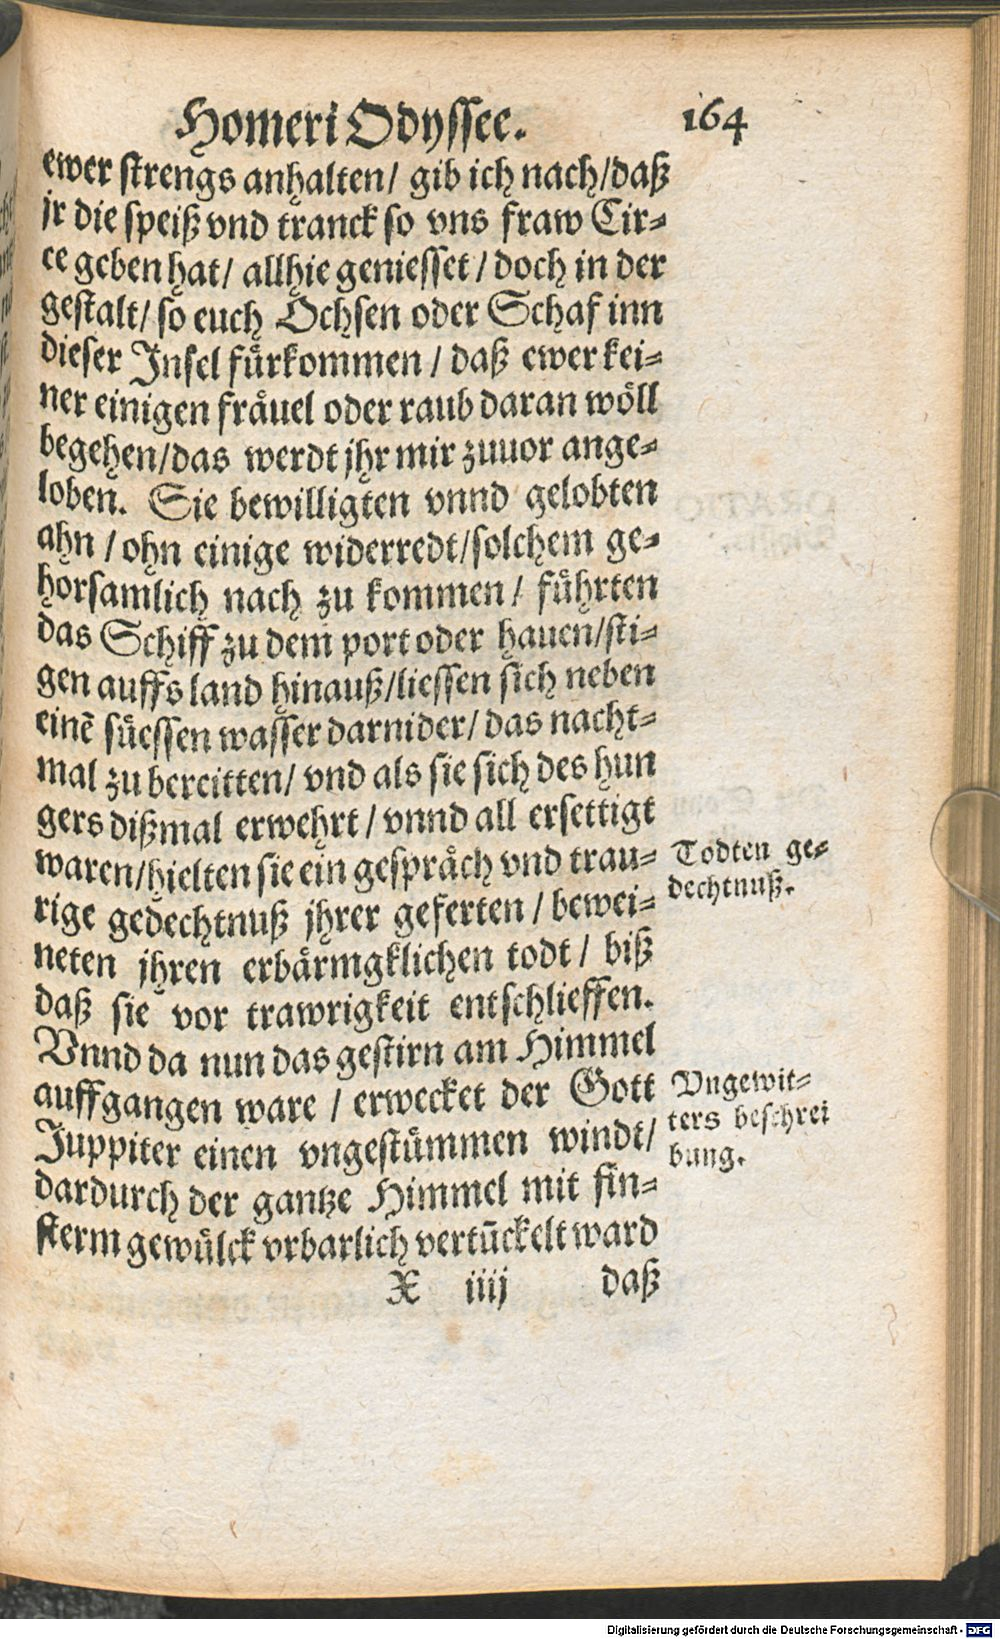 Homeri Odyssee. 164
ewer strengs anhalten/ gib ich nach/daß
jr die speiß vnd tranck so vns fraw Cir⸗
ce geben hat/ allhie geniesset / doch in der
gestalt/ so euch Ochsen oder Schaf inn
dieser Insel fuͤrkommen / daß ewer kei⸗
ner einigen fraͤuel oder raub daran woͤll
begehen/das werdt jhr mir zuuor ange⸗
loben. Sie bewilligten vnnd gelobten
ahn / ohn einige widerredt/solchem ge⸗
horsamlich nach zu kommen / fuͤhrten
das Schiff zu dem port oder hauen/sti⸗
gen auffs land hinauß/liessen sich neben
einẽ suͤessen wasser darnider/ das nacht⸗
mal zu bereitten/ vnd als sie sich des hun
gers dißmal erwehrt / vnnd all ersettigt
waren/hielten sie ein gespraͤch vnd trau⸗
rige gedechtnuß jhrer geferten / bewei⸗
neten jhren erbaͤrmgklichen todt / biß
daß sie vor trawrigkeit entschlieffen.
Vnnd da nun das gestirn am Himmel
auffgangen ware / erwecket der Gott
Juppiter einen vngestuͤmmen windt/
dardurch der gantze Himmel mit fin⸗
sterm gewuͤlck vrbarlich vertũckelt ward
X iiij daß
Todten ge⸗
dechtnuß.
Vngewit⸗
ters beschrei
bung.
Digitalisierung gefördert durch die Deutsche Forschungsgemeinschaft - DFG